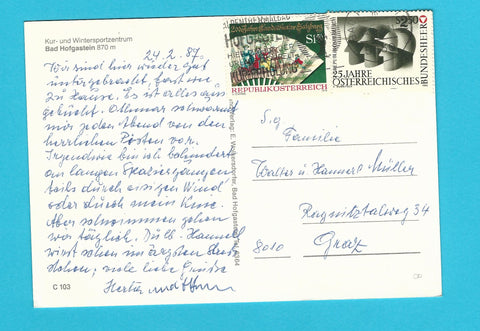 Kur- und Wintersportzentrum
Bad Hofgastein 870 m
24.2.87.
Wir sind hier wieder gut
untergebracht, fast wie
zu Hause. Es ist alles aus-
gebucht. Othmar schwärmt
mir jeden Abend von den
herrlichen Pisten vor.
Irgendwie bin ich behindert
an langen Spaziergängen
teils durch eisigen Wind
oder durch mein Knie.
Aber schwimmen gehen
wir täglich.
wird schon im ärgsten Stress
stehen, viele liebe Grüße
Herta und Othmar
C 103
S 1
REPUBLIK ÖSTERREICH
S 2.50
25. JAHRE
ÖSTERREICHISCHES
BUNDESHEER
S.g.
Familie
Walter u. Hannerl Müller
Ragnitztalweg 34
8010 Graz